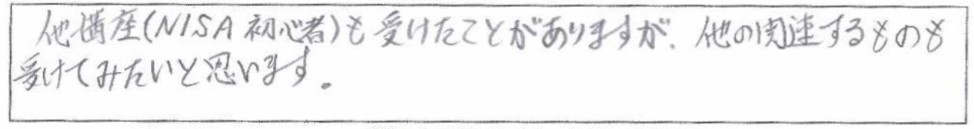 他講座(NISA初心者)も受けたことがありますが、他の関連するものも
受けてみたいと思います。